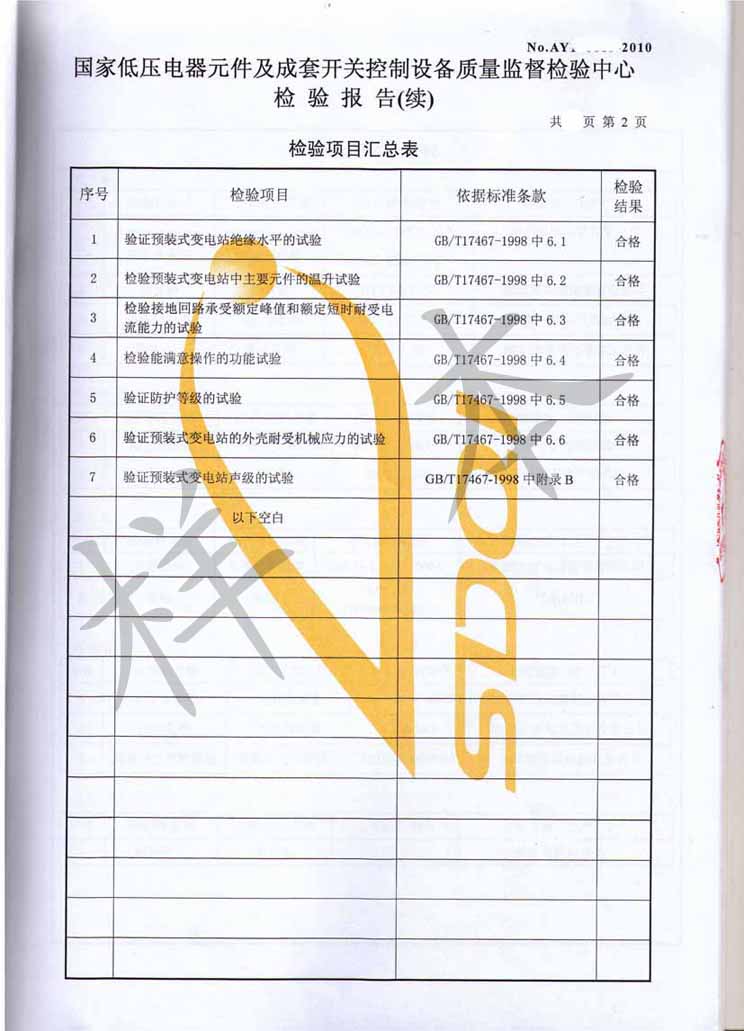 No.AY 2010
国家低压电器元件及成套开关控制设备质量监督检验中心
检 验 报 告(续)
共 页 第 2 页
检验项目汇总表
序号 检验项目 依据标准条款 检验结果
1 验证预装式变电站绝缘水平的试验 GB/T17467-1998 中 6.1 合格
2 检验预装式变电站中主要元件的温升试验 GB/T17467-1998 中 6.2 合格
3 检验接地回路承受额定峰值和额定短时耐受电
流能力的试验 GB/T17467-1998 中 6.3 合格
4 检验能满意操作的功能试验 GB/T17467-1998 中 6.4 合格
5 验证防护等级的试验 GB/T17467-1998 中 6.5 合格
6 验证预装式变电站的外壳耐受机械应力的试验 GB/T17467-1998 中 6.6 合格
7 验证预装式变电站声级的试验 GB/T17467-1998 中附录 B 合格
以下空白
样本